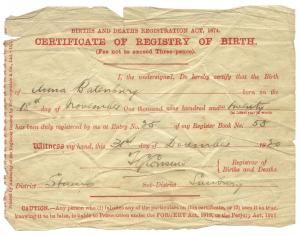 BIRTHS AND DEATHS REGISTRATION ACT, 1874.
CERTIFICATE OF REGISTRY OF BIRTH.
(Fee not to exceed Three-pence.)
I, the undersigned, Do hereby certify that the Birth
of Anna born on the
day of November One thousand nine hundred and twenty
has been duly registered by me at Entry No. 25 of my Register Book No. 53
Witness my hand, this day of December 1920
Registrar of
Births and Deaths.
District Staines Sub-District Sunbury
CAUTION.—Any person who (1) falsifies any of the particulars on this certificate, or (2) uses it as true,
knowing it to be false, is liable to Prosecution under the FORGERY ACT, 1913, or the Perjury Act, 1911